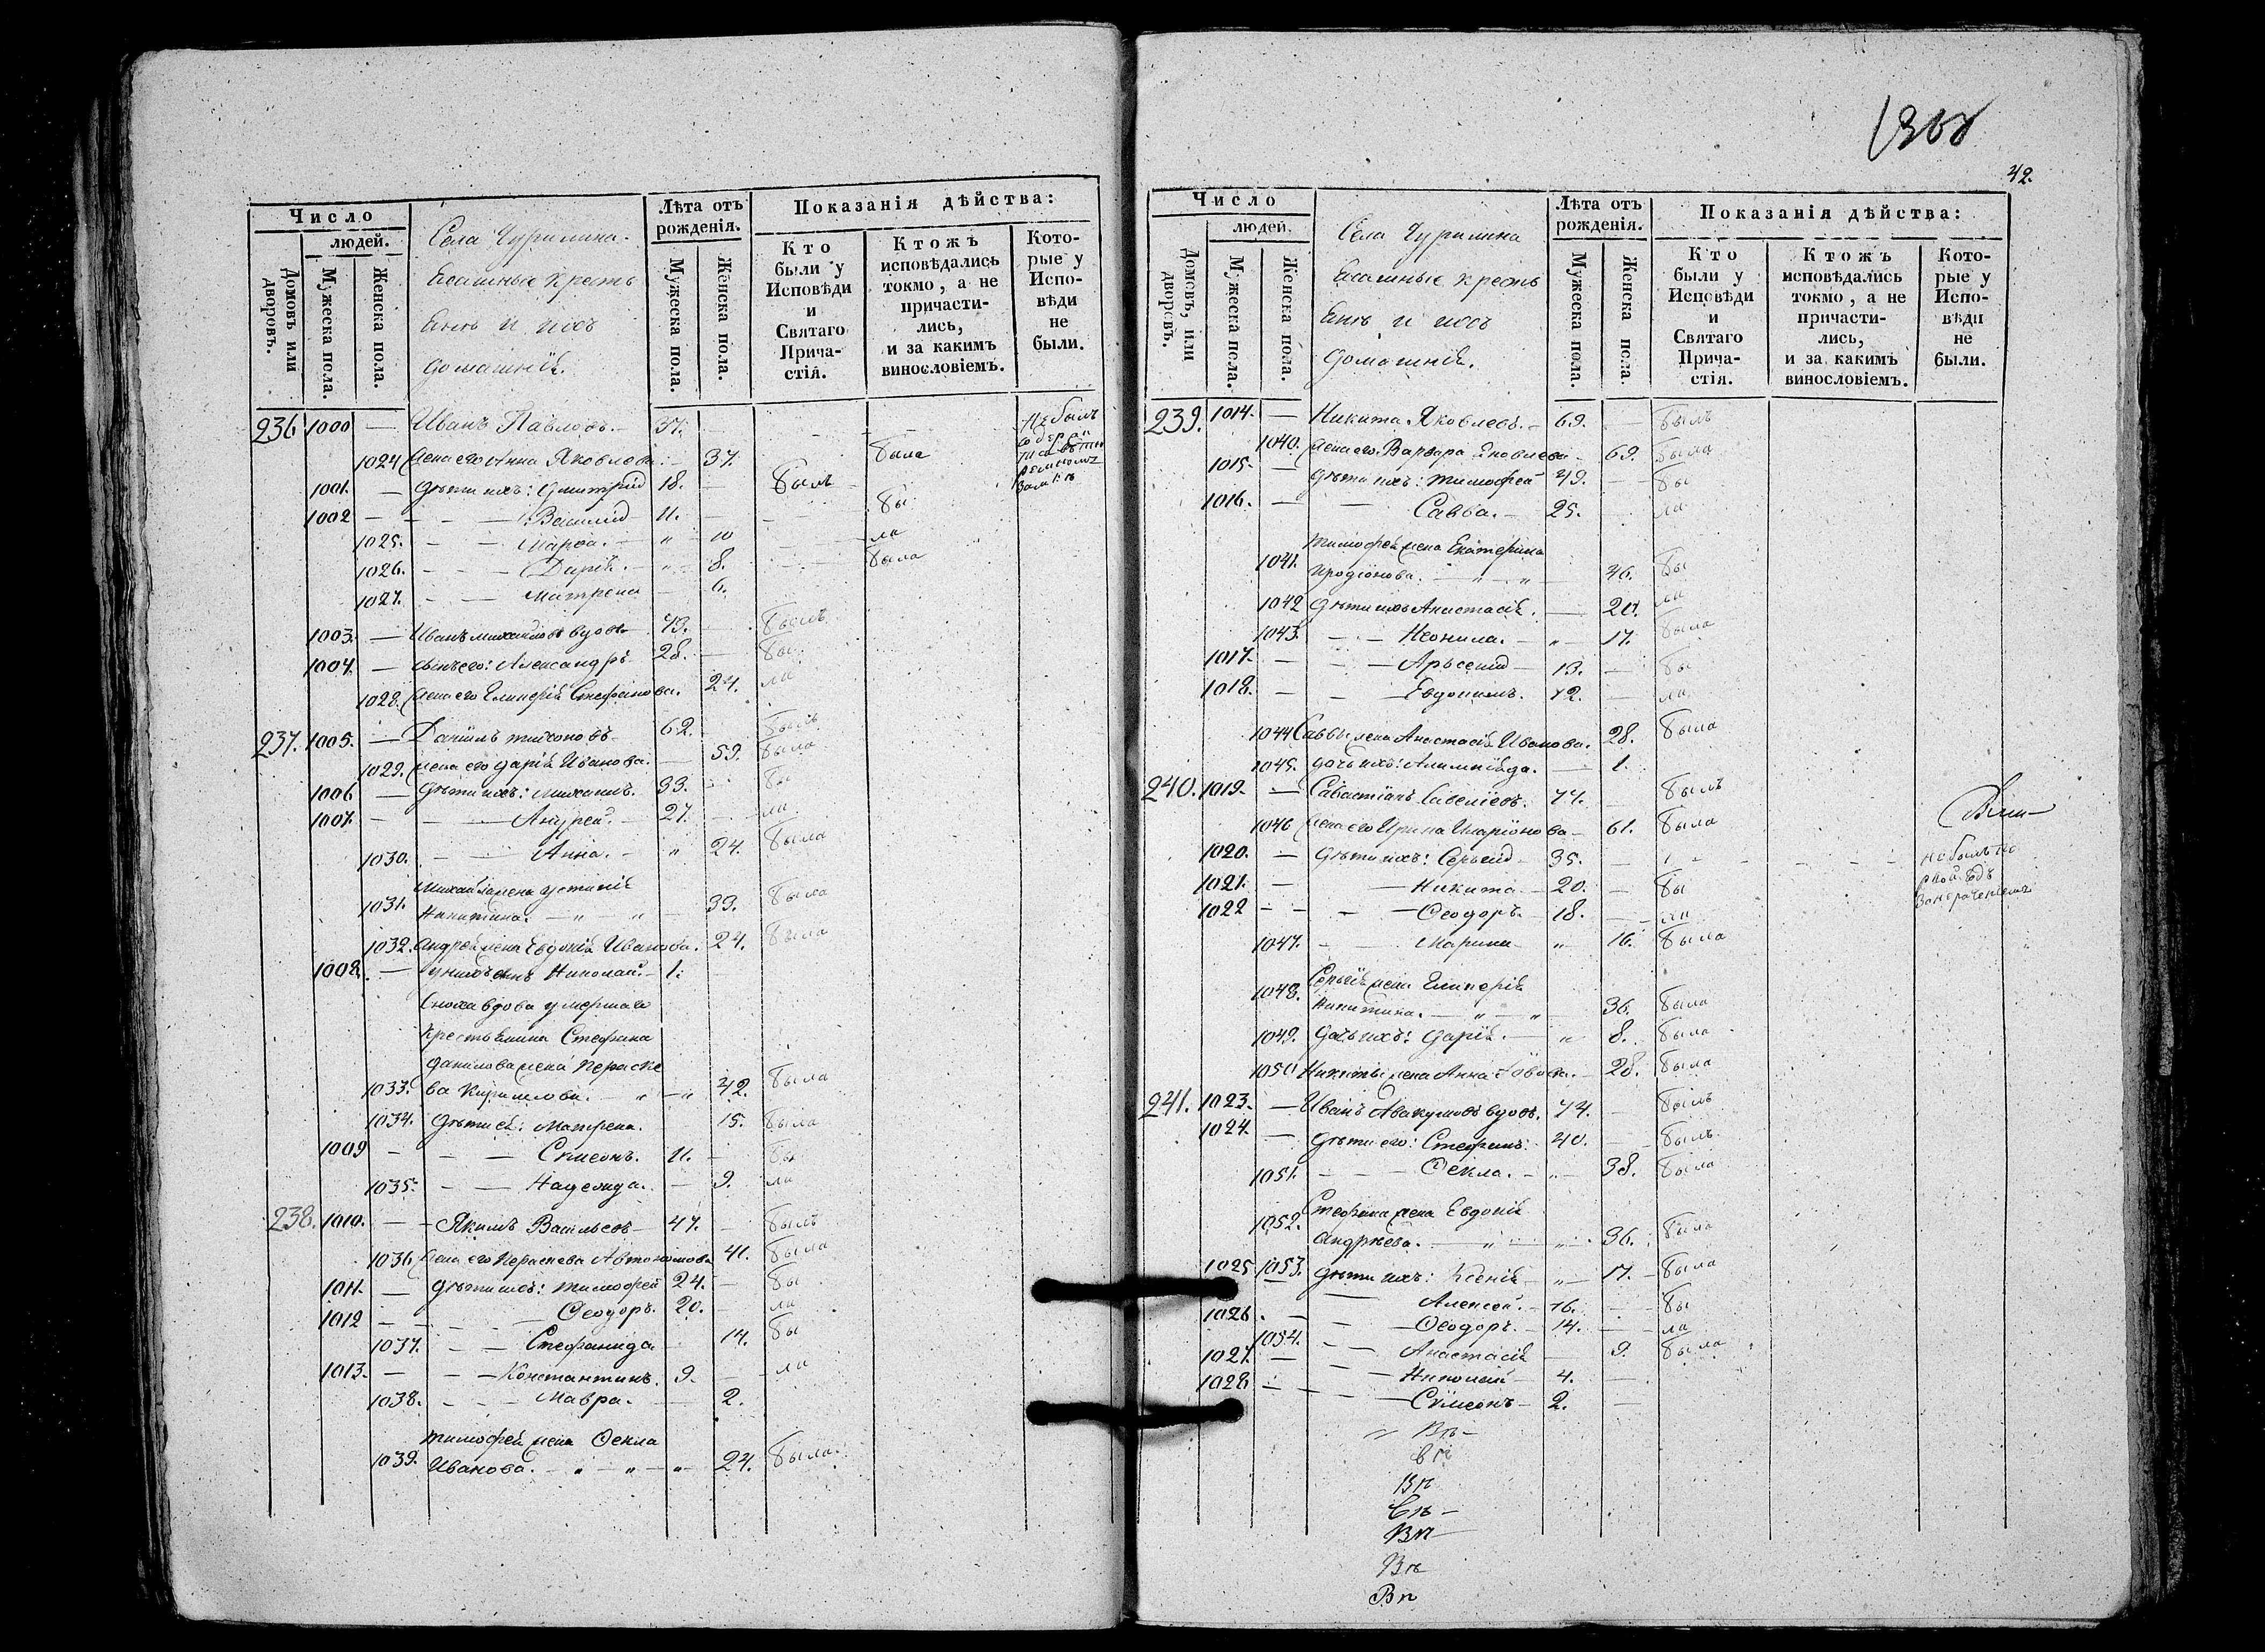 Число
людей.
Домовъ или дворовъ.
Мужеска пола.
Женска пола.
Села Чурилина.
крестъ
яне и ихъ
домашнiѣ.
Лѣта отъ рожденiя.
Мужеска пола.
Женска пола.
Показанiя дѣйства:
Кто были у Исповѣди и Святаго Прича-стiя.
Ктожъ исповѣдались токмо, а не причасти-лись, и за какимъ винословiемъ.
Кото-рые у Испо-вѣди не были.
236 1000 — Иванъ Павловъ. — 37. — Не былъ
1024 жена его Анна Яковлева. — 37. была
1001. — дѣти ихъ: Дмитрiй 18. — былъ
1002 — — — Василiй 11. — бы
1025. — — Марѳа. — " 10 ла
1026. — — Дарiѣ. — " 8. была
1027. — — Матрена — 6.
1003. — Иванъ Михайловъ вдовъ 73. — былъ
1004. — сынъ его: Александръ 28. — бы
1028. жена его Гликерiѣ Стефанова. 24. ла
237. 1005. — Данiилъ Тихоновъ 62. былъ
1029. жена его Дарiѣ Иванова. — 59. была
1006 — дѣти ихъ: Михаилъ. 33. — бы
1007. — — — Андрей. — 27. — ла
1030. — — Анна. — " 24. была
Михаила жена Устинiѣ
1031. Никитина. — " — " — 33. была
1032. Андрея жена Евдокiѣ Иванова. 24. была
1008. — у нихъ сынъ Николай. — 1.
Сноха вдова умершаго
крестьянина Стефана
Данилова жена Параске
1033. ва Кирилова. — " — " 42. была
1034. дѣти ей: Матрена. 15. была
1009 — — — Сѵмеонъ. 11. — бы
1035. — — Надежда. — 9. ла
238. 1010. — — Якимъ Васильевъ 47. — былъ
1036. жена его Параскева Автономова 41. была
1011. — дѣти ихъ: Тимофей 24. — бы
1012 — — — Ѳеодоръ. 20. — ла
1037. — — Стефанида 14. бы
1013. — — — Константинъ. 9. — ла
1038. — — — Мавра. — 2.
Тимофея жена Ѳекла
1039. Иванова. — " — " — " 24. была.
1308
42.
Число
людей.
Домовъ, или дворовъ.
Мужеска пола.
Женска пола.
Села Чурилина
крестъ
яне и ихъ
домашнiѣ.
Лѣта отъ рожденiя.
Мужеска пола.
Женска пола.
Показанiя дѣйства:
Кто были у Исповѣди и Святаго Прича-стiя.
Ктожъ исповѣдались токмо, а не причасти-лись, и за какимъ винословiемъ.
Кото-рые у Испо-вѣди не были.
239. 1014. — Никита Яковлевъ. — 69. — былъ
1040. жена его Варвара Яковлева — 69. была
1015. — дѣти ихъ: Тимофей 49. — бы
1016. — — Савва. — 25. ла
Тимофея жена Екатерина
1041. Иродiонова. — " — " — 46. бы
1042 дѣти ихъ Анастасiѣ. — 20. ла
1043. — — Неонила. — " — 17. была
1017. — — — Арьсенiй — 13. — бы
1018. — — — Евдокимъ. 12. — ла
1044 Саввы жена Анастасiѣ Иванова. 28. была
1045. дочь ихъ: Алимпiѣда. — 1.
240. 1019. — — Савастiанъ Савелiевъ. 77. — былъ
1046 жена его Ирина Иларiонова — 61. была
1020. — дѣти ихъ: Сергiй 35. — не былъ
1021. — — Никита — 20. — бы
1022 — — — Ѳеодоръ. — 18. — ли
1047. — — Марина " 16. была
Сергiѣ жена Гликерiѣ
1048. Никитина. — " — " — 36. была
1049. дочь ихъ: Дарiѣ. — " 8. была
1050 Никиты жена Анна — 28. была
241. 1023. — Иванъ Авакумовъ вдовъ. 74. — былъ
1024. — дѣти его: Стефанъ. 40. — былъ
1051. — — — Ѳекла. — " — 38. была
Стефана жена Евдокiѣ
1052. Андрѣева. — " — " — 36. была
1025 1053. дѣти ихъ: Ксенiѣ — " — 17. — была
— Алексей. — 16. — бы
1026. — — — Ѳеодоръ. — 14. — ла
1054. — — Анастасiѣ — 9. была
1027. — — — Николай 4. —
1028 — — — Сѵмеонъ — 2. —